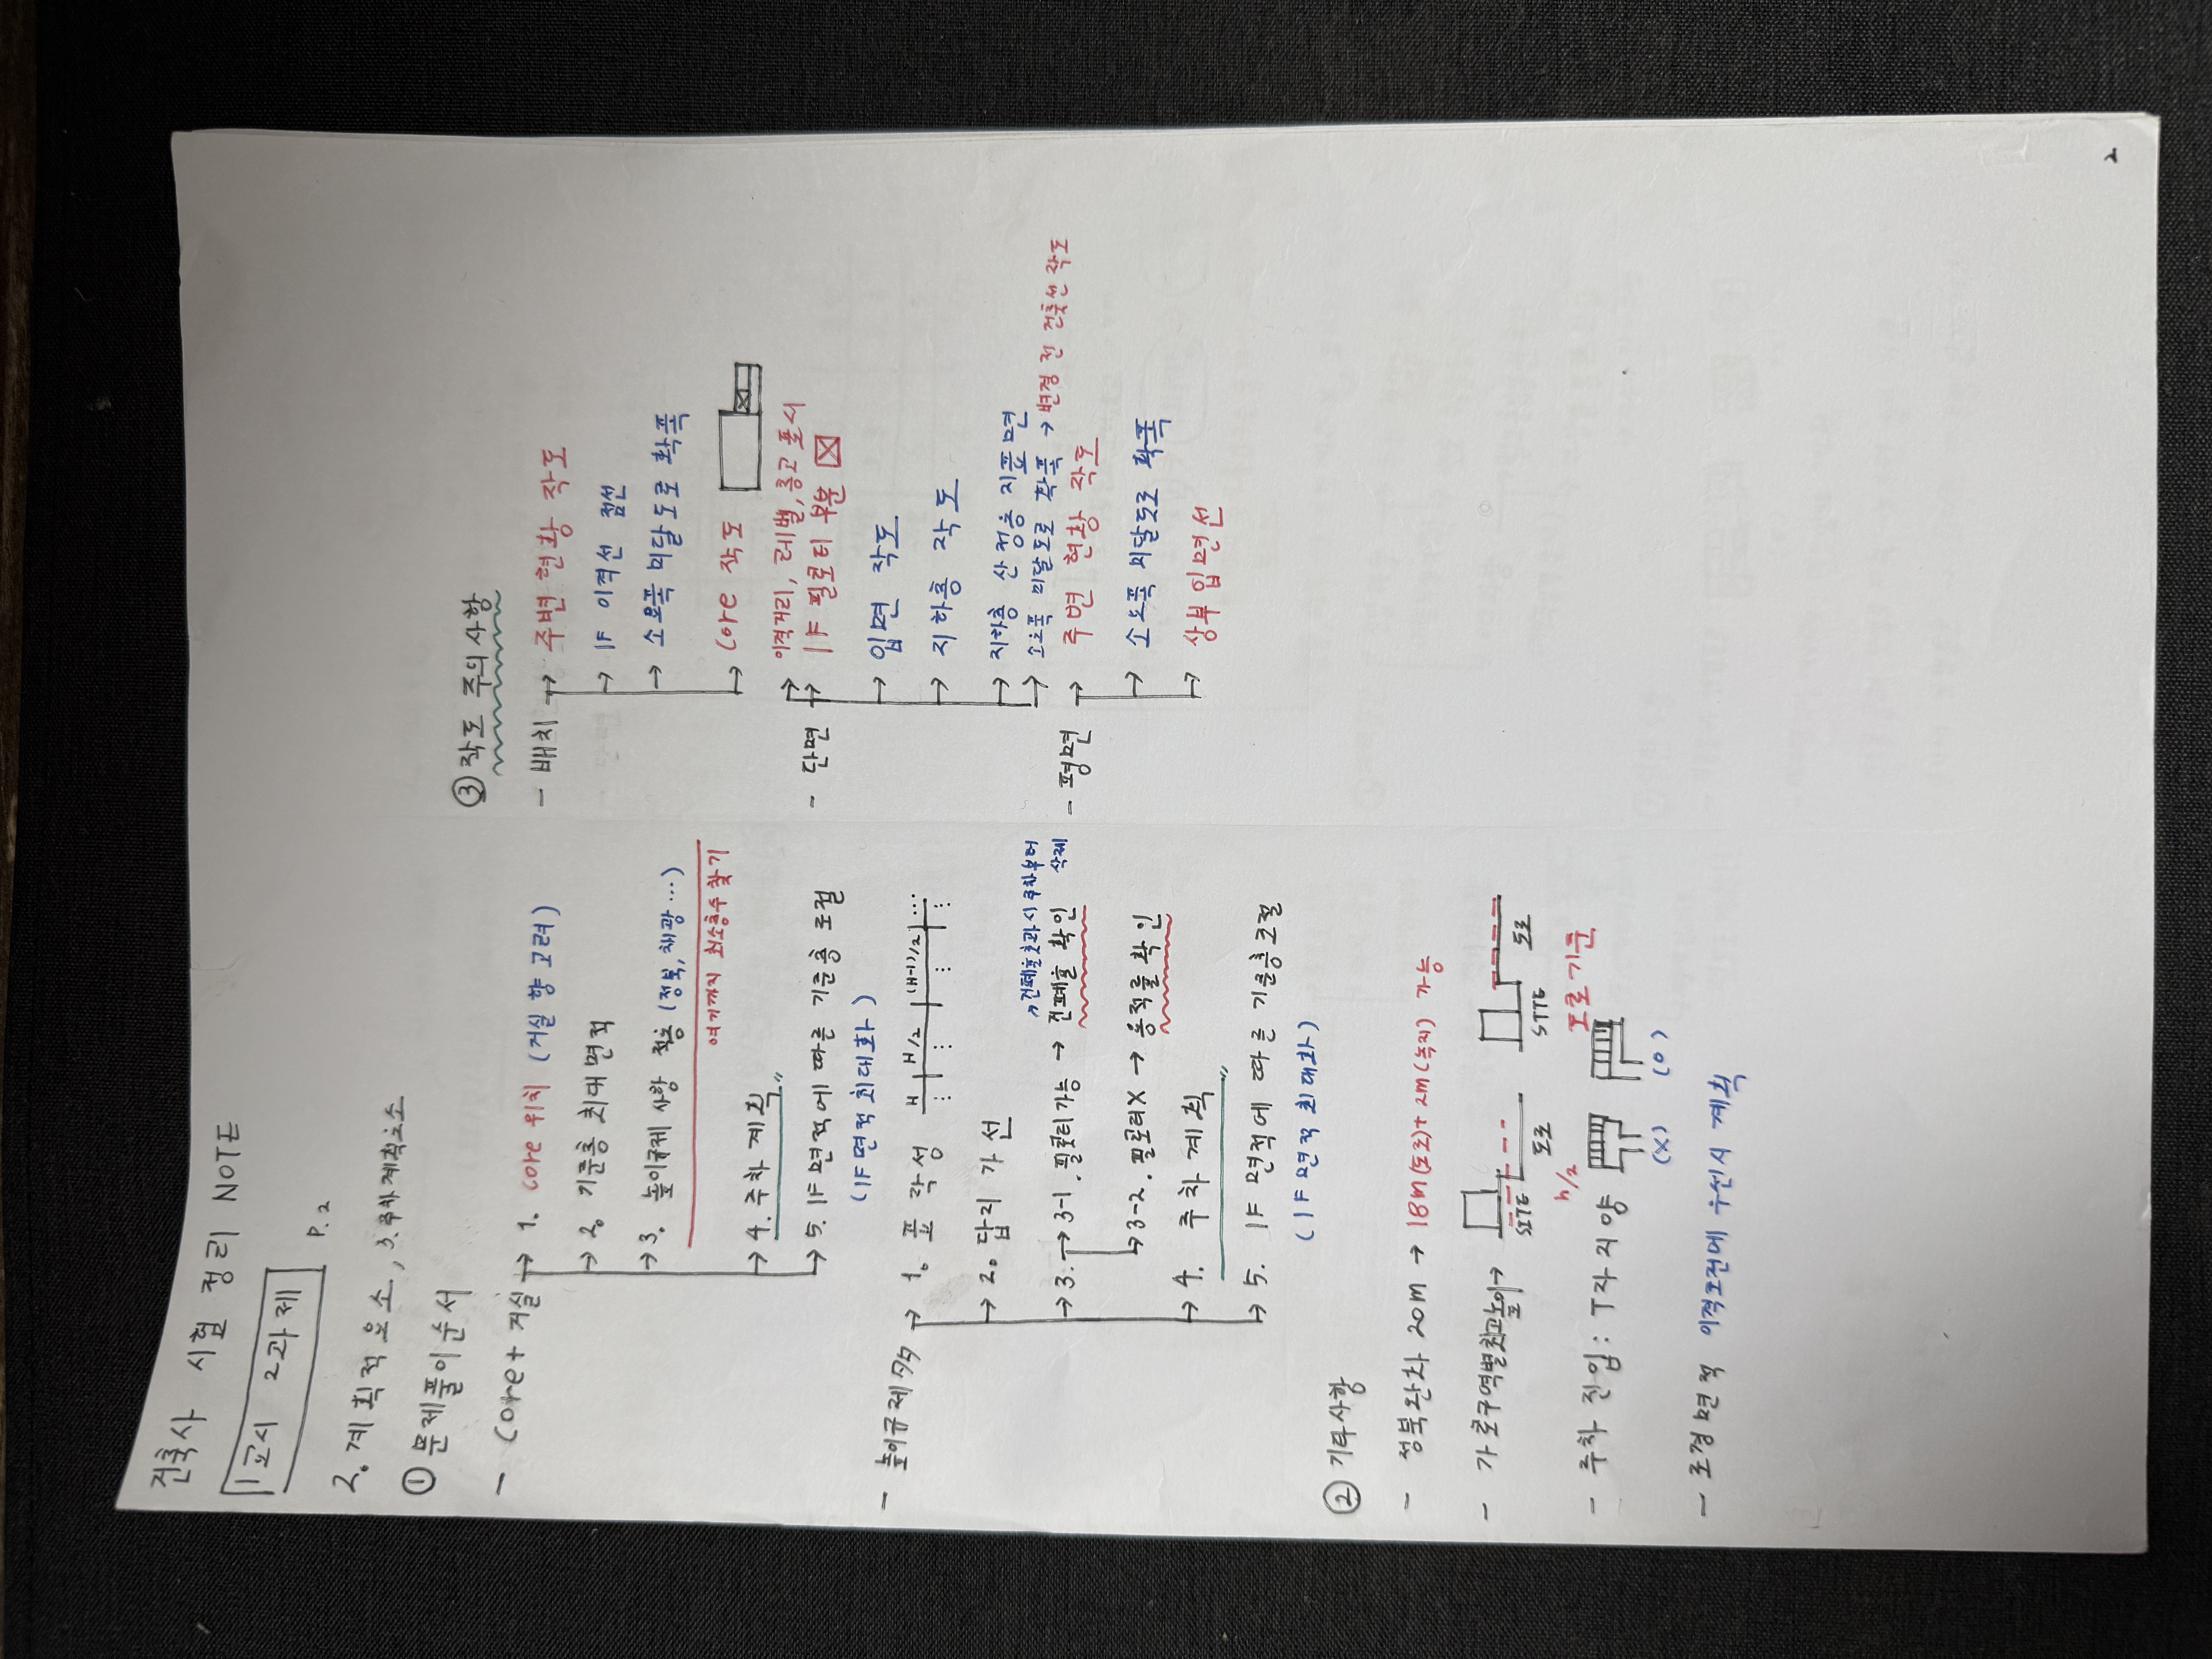 건축사 시험 정리 NOTE
1교시 2과제
P.2
2. 계획적 요소, 3. 주차계획요소
① 문제풀이순서
- Core + 거실 → 1. Core 위치 (거실 향 고려)
→ 2. 기준층 최대면적
→ 3. 높이규제 사항 적용 (정북, 채광…)
여기까지 최소층수 찾기
→ 4. 주차계획
→ 5. 1F 면적에 따른 기준층 조절
(1F 면적 최대화)
- 높이규제 → 1. 표 작성 H H/2 (H-1)/2 …
→ 2. 답지 가선
→ 3. → 3-1. 필로티가능 → 건폐율 확인
→ 건폐율초과시 주차부터 삭제
→ 3-2. 필로티X → 용적률 확인
→ 4. 주차 계획
→ 5. 1F 면적에 따른 기준층조절
(1F 면적 최대화)
② 기타사항
- 정북완화 20m → 18m(도로)+2m(녹지) 가능
- 가로구역별최고높이→ SITE 도로 h/2 SITE 도로 도로기준
- 주차 진입 : T자 지양 (X) (O)
- 조경면적 이격조건에 우선시 계획
③ 작도 주의사항
- 배치 → 주변현황 작도
→ 1F 이격선 점선
→ 소요폭 미달도로 확폭
→ Core 작도
- 단면 → 이격거리, 레벨, 층고 표시
→ 1F 필로티 부분
→ 입면 작도
→ 지하층 작도
→ 지하층 산정용 지표면
→ 소요폭 미달도로 확폭 → 변경 전 건축선 작도
- 평면 → 주변 현황 작도
→ 소요폭 미달도로 확폭
→ 상부입면선
2